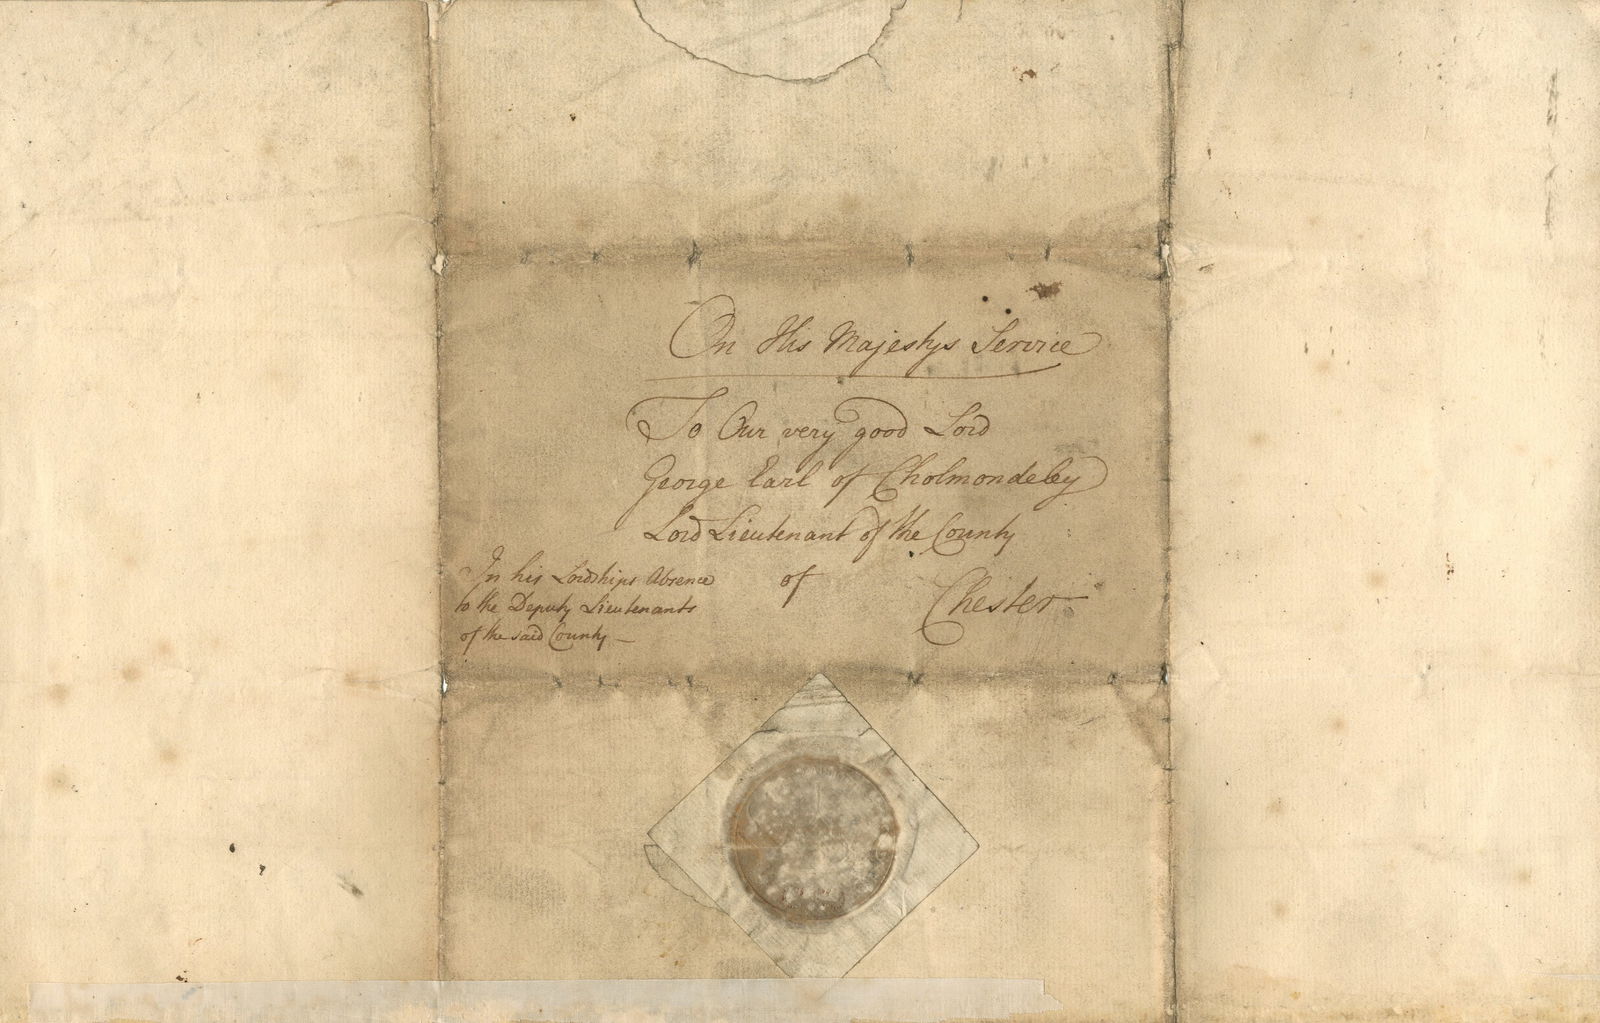 On His Majestys Service
To Our very good Lord
George Earl of Cholmondeley
Lord Lieutenant of the County
of Chester
In his Lordships Absence
to the Deputy Lieutenants
of the said County —